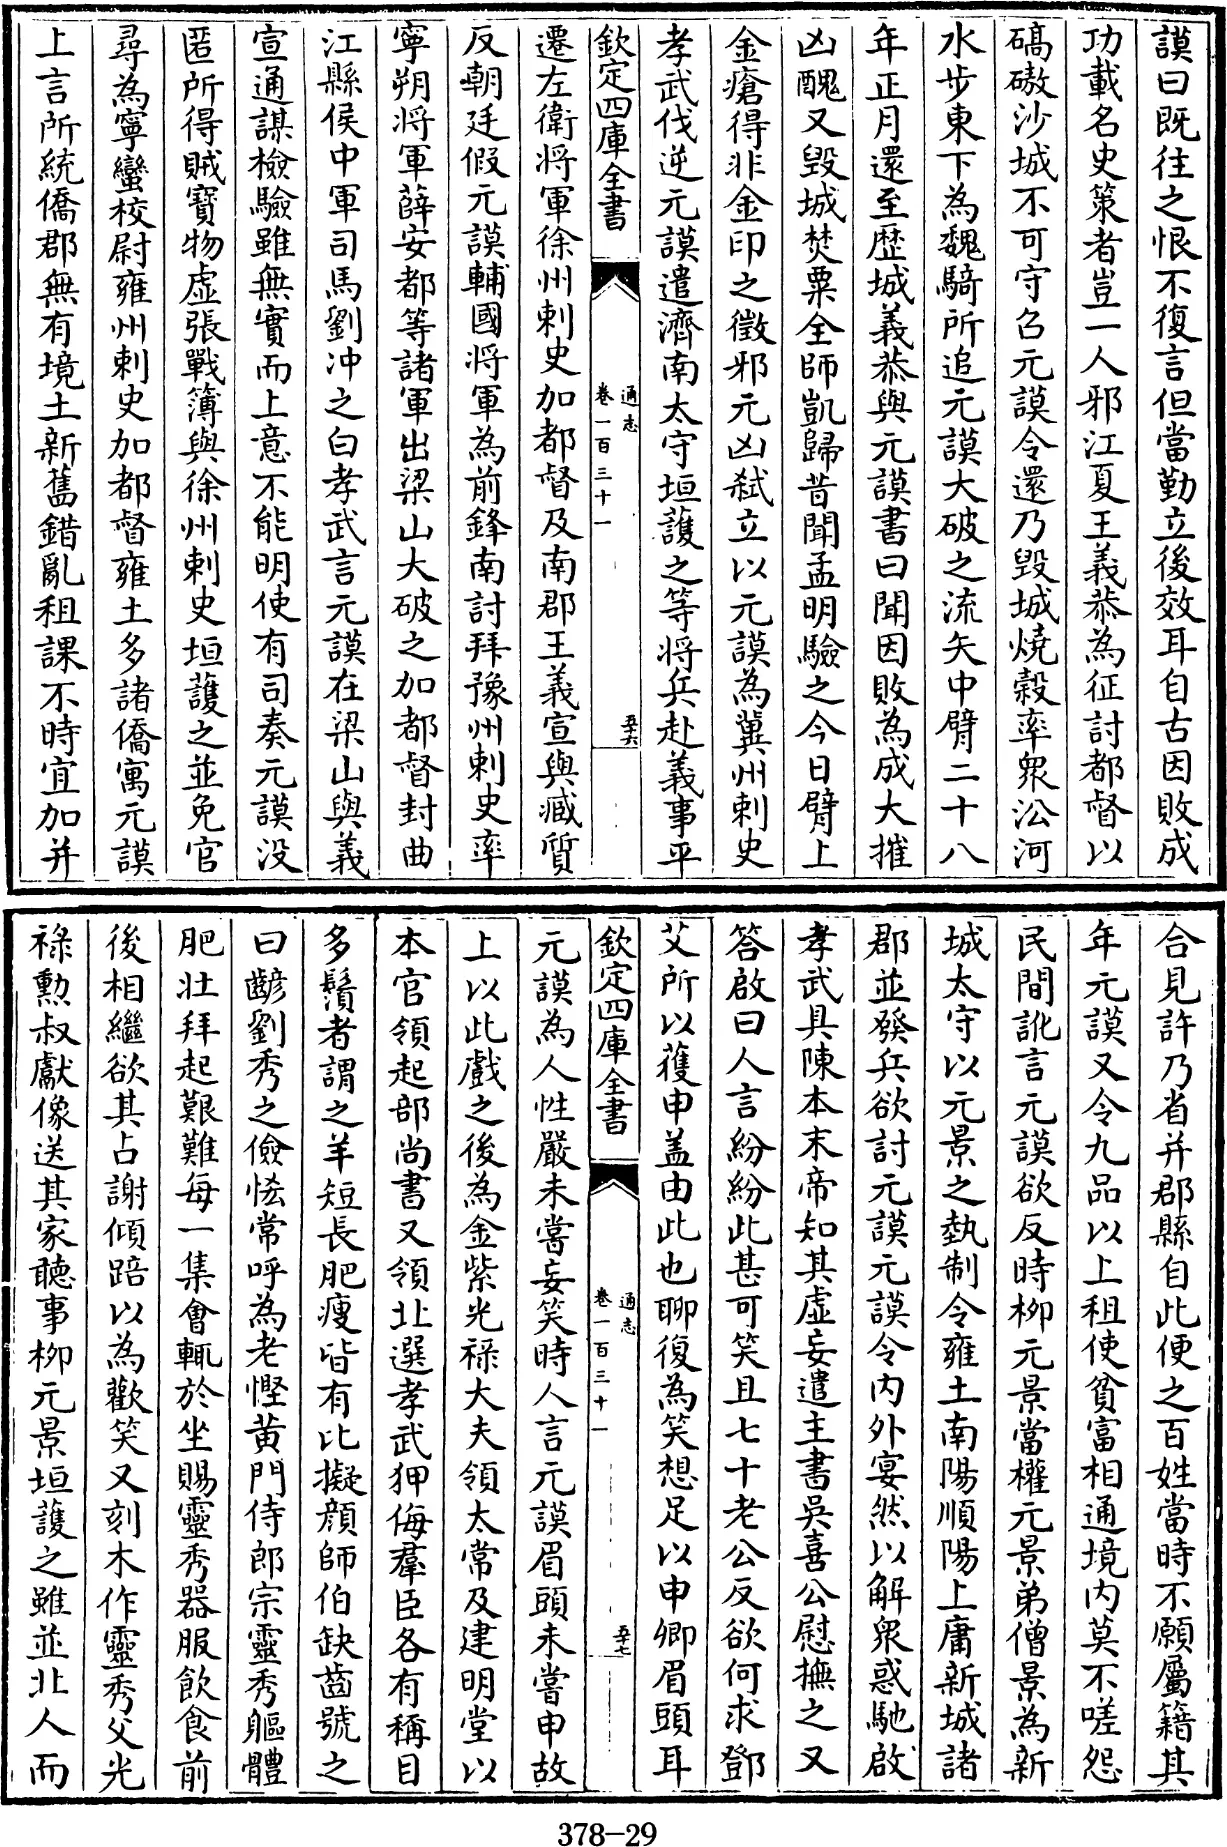 謨曰既往之恨不復言但當勤立後效耳自古因敗成
功載名史策者豈一人邪江夏王義恭為征討都督以
碻磝沙城不可守召元謨令還乃毁城燒穀率衆沿河
水步東下為魏騎所追元謨大破之流矢中臂二十八
年正月還至歴城義恭與元謨書曰聞因敗為成大摧
凶醜又毁城焚粟全師凱歸昔聞孟明驗之今日臂上
金瘡得非金印之徵邪元凶弑立以元謨為冀州刺史
孝武伐逆元謨遣濟南太守垣護之等將兵赴義事平
欽定四庫全書
通志
卷一百三十一
五十六
遷左衛將軍徐州刺史加都督及南郡王義宣與臧質
反朝廷假元謨輔國將軍為前鋒南討拜豫州刺史率
寧朔將軍薛安都等諸軍出梁山大破之加都督封曲
江縣侯中軍司馬劉沖之白孝武言元謨在梁山與義
宣通謀檢驗雖無實而上意不能明使有司奏元謨没
匿所得賊寶物虚張戰簿與徐州刺史垣護之並免官
尋為寧蠻校尉雍州刺史加都督雍土多諸僑寓元謨
上言所統僑郡無有境土新舊錯亂租課不時宜加并
合見許乃省并郡縣自此便之百姓當時不願屬籍其
年元謨又令九品以上租使貧富相通境内莫不嗟怨
民間訛言元謨欲反時柳元景當權元景弟僧景為新
城太守以元景之埶制令雍土南陽順陽上庸新城諸
郡並發兵欲討元謨元謨令内外宴然以解衆惑馳啟
孝武具陳本末帝知其虚妄遣主書吳喜公慰撫之又
答啟曰人言紛紛此甚可笑且七十老公反欲何求鄧
艾所以獲申盖由此也聊復為笑想足以申卿眉頭耳
欽定四庫全書
通志
卷一百三十一
五十七
元謨為人性嚴未嘗妄笑時人言元謨眉頭未嘗申故
上以此戲之後為金紫光祿大夫領太常及建明堂以
本官領起部尚書又領北選孝武狎侮羣臣各有稱目
多鬚者謂之羊短長肥瘦皆有比擬顔師伯缺齒號之
曰齴劉秀之儉恡常呼為老慳黄門侍郎宗靈秀軀體
肥壯拜起艱難每一集會輒於坐賜靈秀器服飲食前
後相繼欲其占謝傾踣以為歡笑又刻木作靈秀父光
祿勲叔獻像送其家聽事柳元景垣護之雖並北人而
378-29